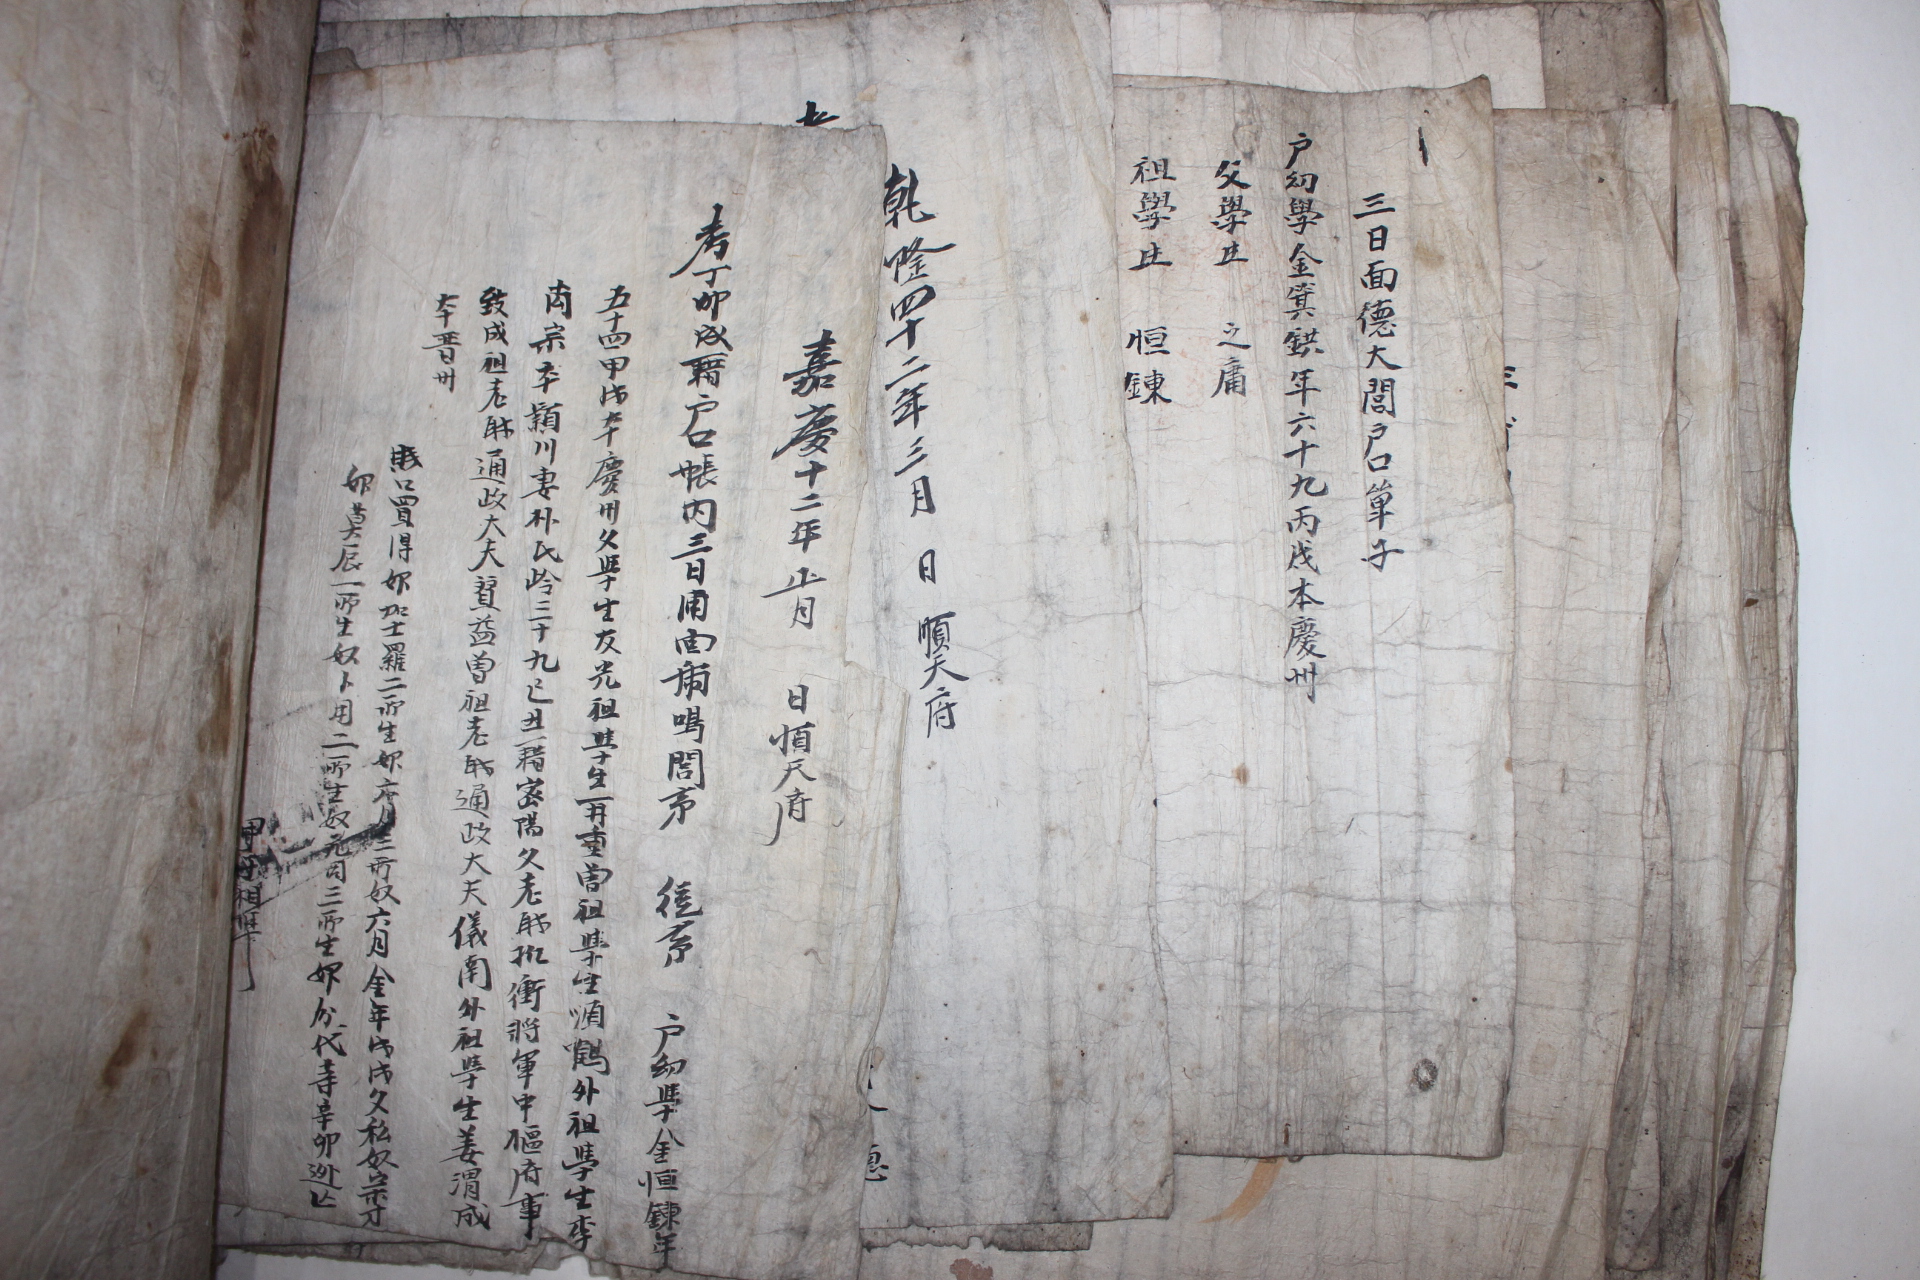 三日面德大閭戶口單子
戶幼學金箕鉷年六十九丙戌本慶州
父學生 之庸
祖學生 恒鍊
乾隆四十二年三月 日 順天府
嘉慶十二年正月 日 順天府
考丁卯成籍戶口帳內三日浦面 鳴閭 戶幼學金恒鍊年
五十四甲戌本慶州父學生友光祖學生 重曾祖學生順鶴外祖學生李
宗本潁川妻朴氏齡三十九己丑籍密陽父老職折衝將軍中樞府事
致成祖老職通政大夫 益曾祖老職通政大夫儀南外祖學生姜渭成
本晉州
賤口買得婢加士羅二所生婢 月三所奴六月金年戊戌父私奴 才
婢莫辰一所生奴卜用二所生奴元 三所生婢分代等辛卯逃亡